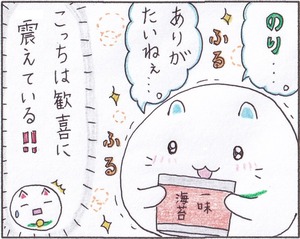 のり…。
ふる
ありが
たいねぇ…。
ふる
一味
海苔
こっちは歓喜に
震えている!!